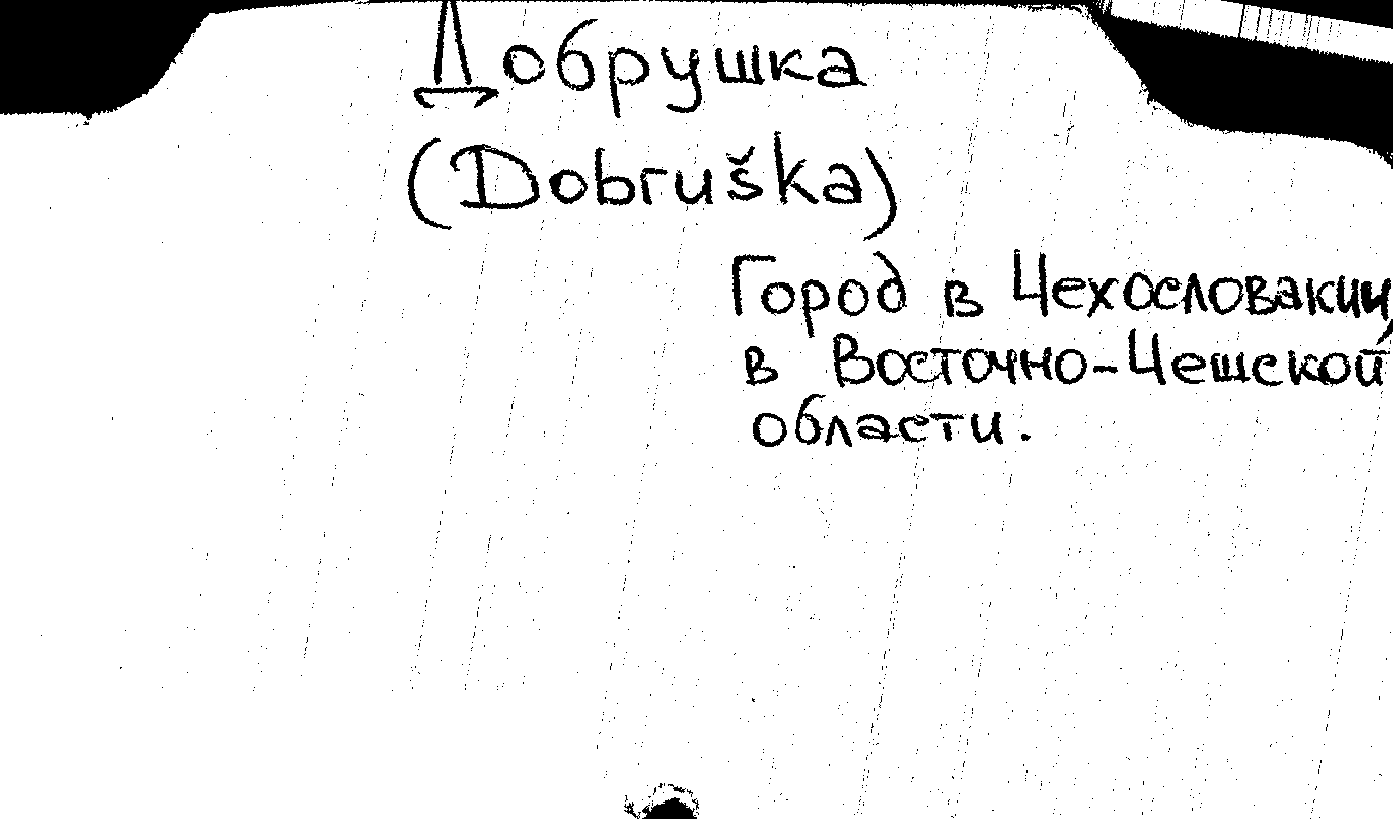 Добрушка
(Dobruška)
Город в Чехословакии,
в Восточно-Чешской
области.